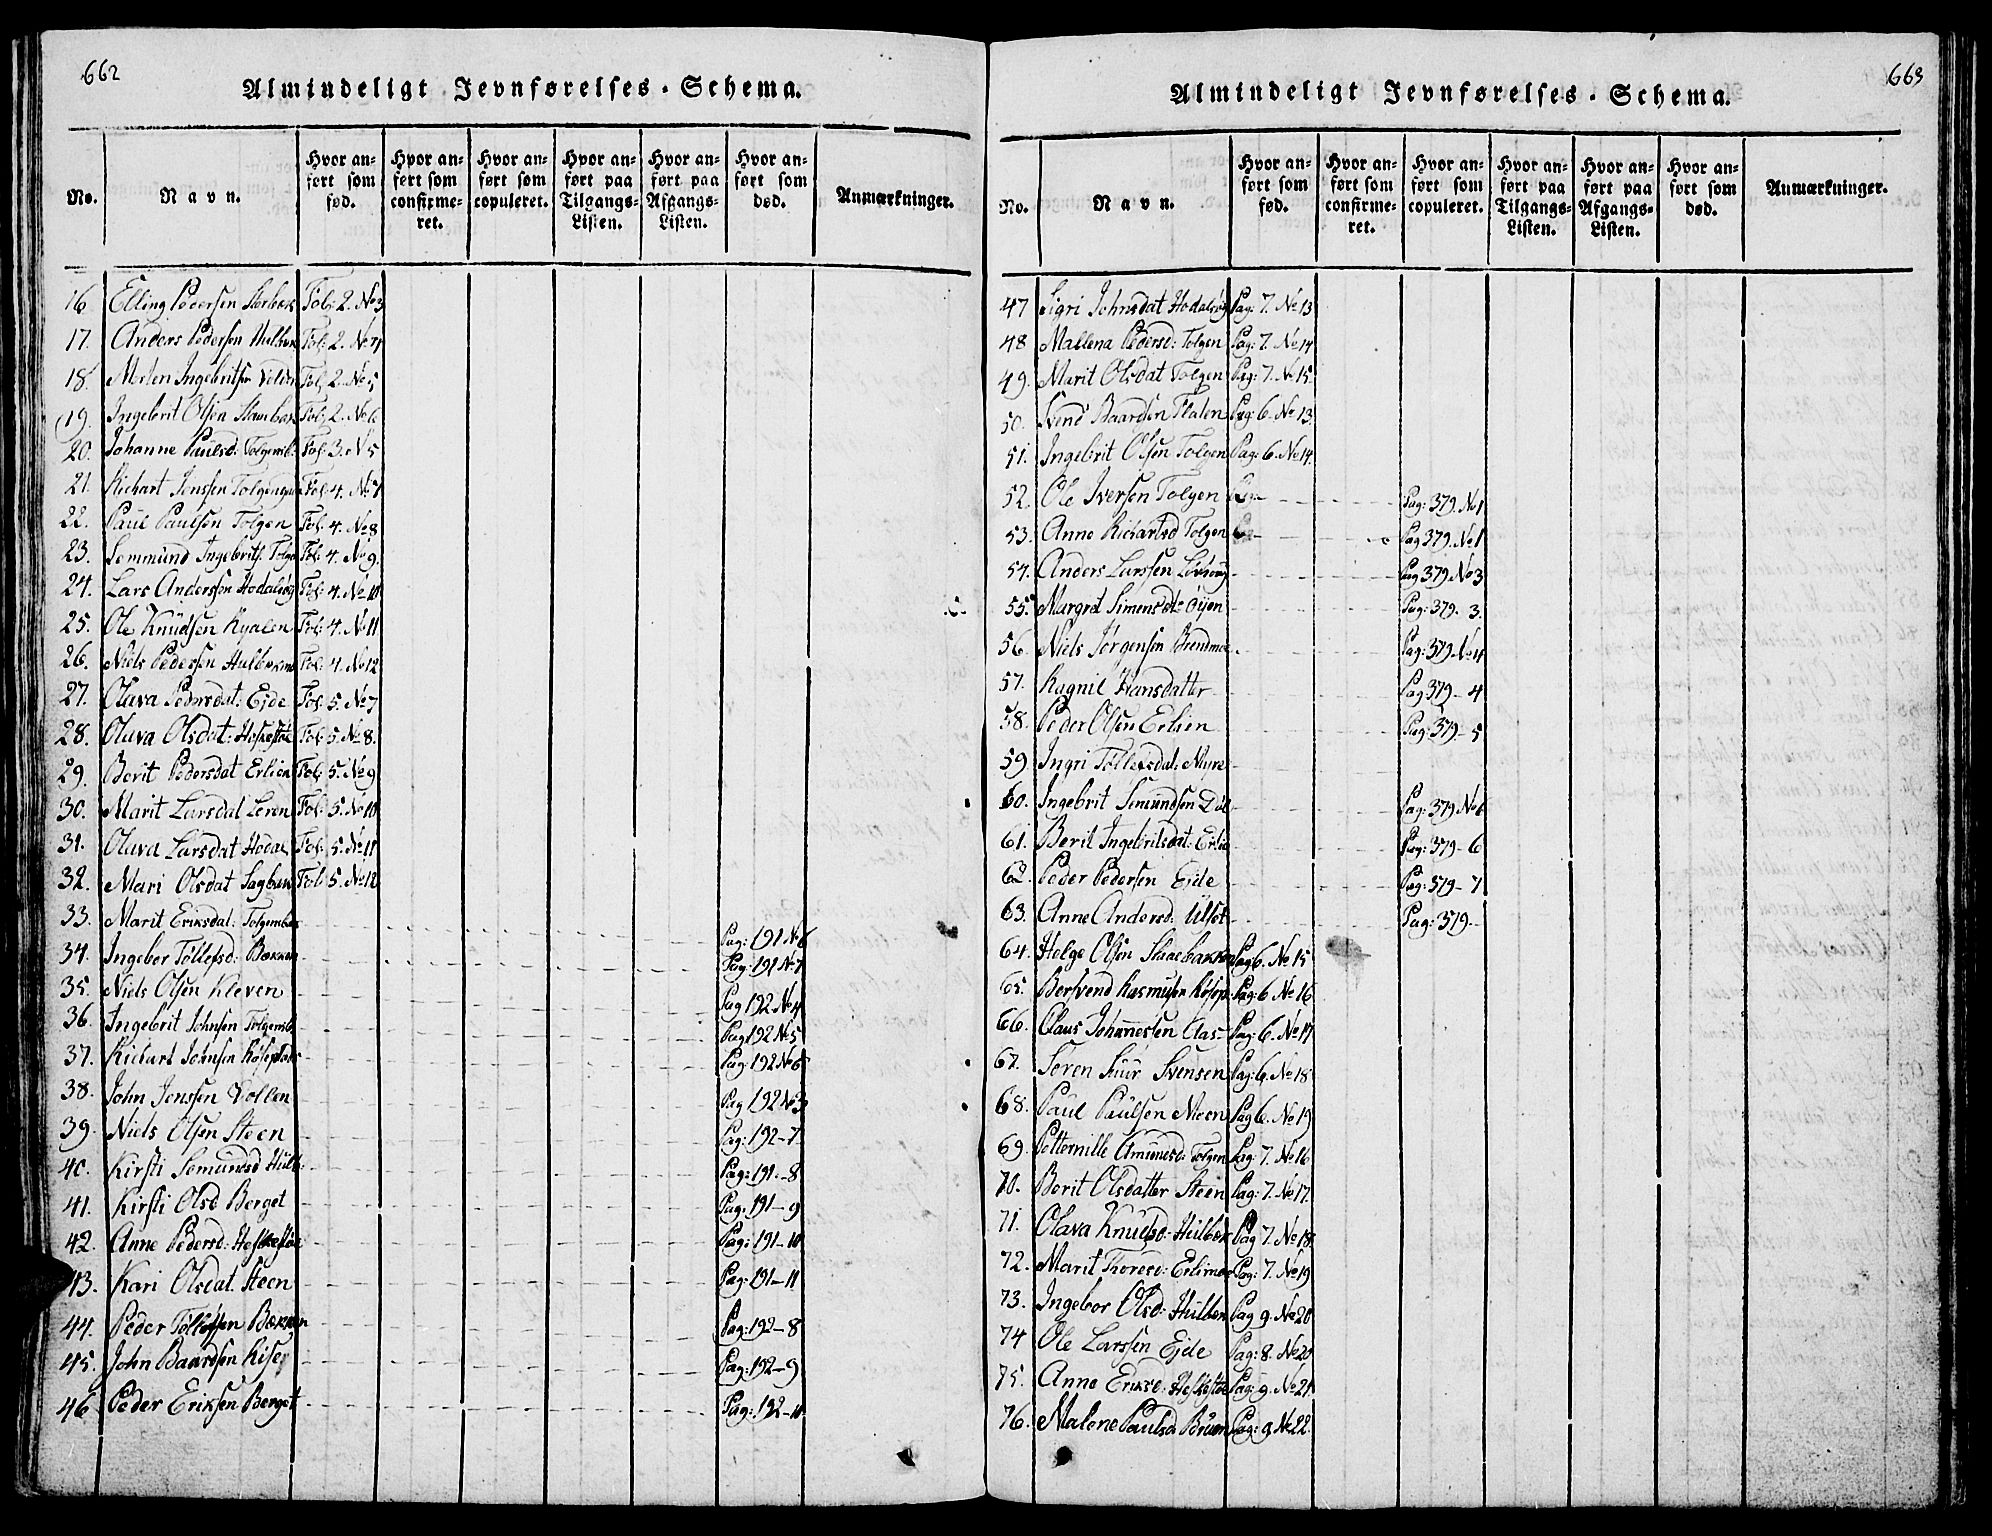 662
Almindeligt Jevnførelses-Schema.
No.
Navn.
Hvor anført som fød.
Hvor anført som confirmeret.
Hvor anført som copuleret.
Hvor anført paa Tilgangs-Listen.
Hvor anført paa Afgangs-Listen.
Hvor anført som død.
Anmærkninger.
16 Elling Pedersen Fol: 2. No 3
17. Anders Pedersen Fol: 2. No 4
18. Morten Ingebritsen Fol: 2. No 5
19. Ingebrit Olsen Fol: 2. No 6
20. Johanne Paulsd: Fol: 3. N 5
21. Richart Jenssen Fol: 4. No 7
22. Paul Paulsen Tolgen Fol: 4. No 8
23. Semmund Ingebrits. Tolgen Fol: 4. No 9.
24. Lars Anderssen Hodalsøg Fol: 4. No 10
25. Ole Knudsen Fol: 4. No 11
26. Niels Pedersen Fol: 4. No 12
27. Olava Pedersdat: Eide Fol: 5. No 7
28. Olava Olsdat: Fol: 5. No 8.
29. Berit Pedersdat Erlien Fol: 5. No 9
30. Marit Larsdat Leren Fol: 5. No 10
31. Olava Larsdat Hodal Fol: 5. No 11
32. Mari Olsdat Fol: 5. No 12
33. Marit Eriksdat: Pag: 191 No 6
34. Ingebor Tøllefsd: Bækken Pag: 191 No 7
35. Niels Olsen Kleven Pag 192 No 4
36. Ingebrit Johnsen Pag 192 No 5
37. Richart Johnsen Pag: 192 No 6
38. John Jenssen Vollen Pag 192 No 3
39. Niels Olsen Steen Pag: 192-7.
40. Kirsti Semundsd Pag: 191.-8
41. Kirsti Olsd Berget Pag: 191-9
42. Anne Pedersd: Pag: 191-10
43. Kari Olsdat. Steen Pag: 191-11
44. Peder Tøllefsen Bækken Pag: 192-8
45. John Baardsen Pag: 192-9
46 Peder Eriksen Berget Pag: 192-10
663
Almindeligt Jevnførelses-Schema.
No.
Navn.
Hvor anført som fød.
Hvor anført som confirmeret.
Hvor anført som copuleret.
Hvor anført paa Tilgangs-Listen.
Hvor anført paa Afgangs-Listen.
Hvor anført som død.
Anmærkninger.
47 Sigri Johnsdat Hodalsøg Pag: 7. No 13
48 Mallena Pedersd: Tolgen Pag: 7. No 14
49. Marit Olsdat Tolgen Pag: 7. No 15
50. Svend Baardsen Flaten Pag: 6. No 13
51. Ingebrit Olsen Tolgen Pag: 6. No 14.
52. Ole Iversen Tolgen Pag: 379. No 1
53. Anne Richartsd Tolgen Pag 379. No 1
54. Anders Larssen Pag 379 No 3
55. Margret Simensdt: Øyen Pag: 379. 3.
56. Niels Jørgensen Pag: 379. No 4
57. Ragnil Hansdatter Pag 379-4
58. Peder Olsen Erlien Pag: 379-5
59 Ingri Tøllefsdat: Myre
60. Ingebrit Semundsen Pag: 379 No 6
61. Berit Ingebritsdat: Erlie Pag: 379-6
62. Peder Pedersen Eide Pag: 379-7
63. Anne Andersd: Ulset Pag: 379-
64. Helge Olsen Pag 6. No 15
65. Bersvend Rasmusen Pag: 6 No 16
66. Claus Johannessen Aas Pag: 6. No 17
67. Søren Svensen Pag: 6. No 18
68. Paul Paulsen Moen Pag 6. No 19
69. Petternille Amundsd: Tolgen Pag: 7. No 16
70. Berit Olsdatter Steen Pag: 7. No 17.
71. Olava Knudsd: Pag 7. No 18.
72. Marit Thoresd: Pag: 7. No 19
73. Ingebor Olsd: Pag 9. No 20
74 Ole Larssen Eide Pag: 8. No 20
75. Anne Eriksd: Pag: 9. No 21.
76. Malene Paulsd Pag: 9. No 22.